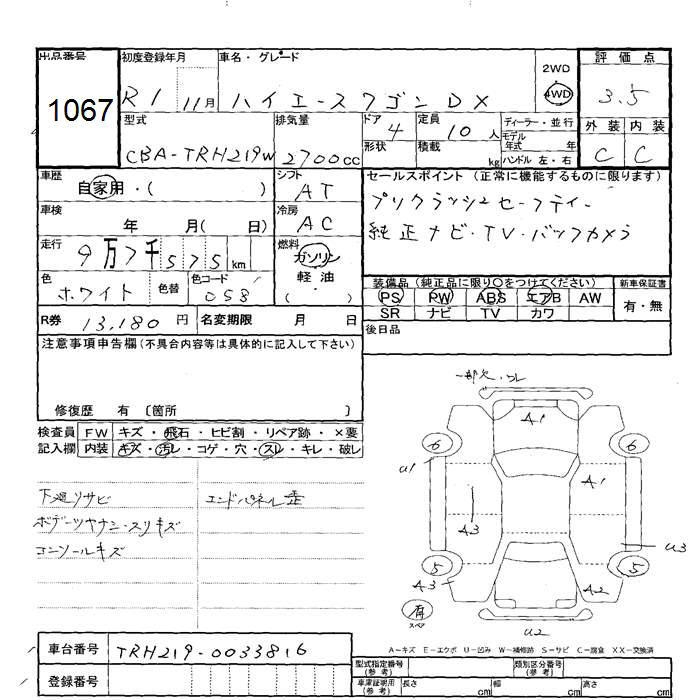 出品番号
1067
初度登録年月
R1 11月
車名・グレード
ハイエースワゴンDX
2WD
4WD
評価点
3.5
外装 内装
C C
型式
CBA-TRH219W
排気量
2700cc
ドア
4
形状
定員
10人
積載
kg
ディーラー・並行
モデル
年式 年
ハンドル 左・右
車歴
自家用・( )
シフト
AT
セールスポイント (正常に機能するものに限ります)
プリクラッシュセーフティー
純正ナビ・TV・バックカメラ
車検
年 月( 日)
冷房
AC
走行
9万7千575km
燃料
ガソリン
軽油
( ・ )
色
ホワイト
色替
色コード
058
装備品 (純正品に限り○をつけてください)
PS PW ABS エアB AW
SR ナビ TV カワ
新車保証書
有・無
R券 13,180円
名変期限 月 日
後日品
注意事項申告欄 (不具合内容等は具体的に記入して下さい)
修復歴 有 〔箇所 〕
検査員 FW キズ・飛石・ヒビ割・リペア跡・×要
記入欄 内装 キズ・汚レ・コゲ・穴・スレ・キレ・破レ
下廻リサビ
エンドパネル歪
コンソールキズ
一部欠・ワレ
A1
6
6
U1
A1
A3
U3
5
5
A3
A2
スペア
U2
A−キズ E−エクボ U−凹み W−補修跡 S−サビ C−腐食 XX−交換済
車台番号 TRH219-0033816
登録番号
型式指定番号
(参考)
類別区分番号
(参考)
車庫証明用
(参考)
長さ cm
幅 cm
高さ cm